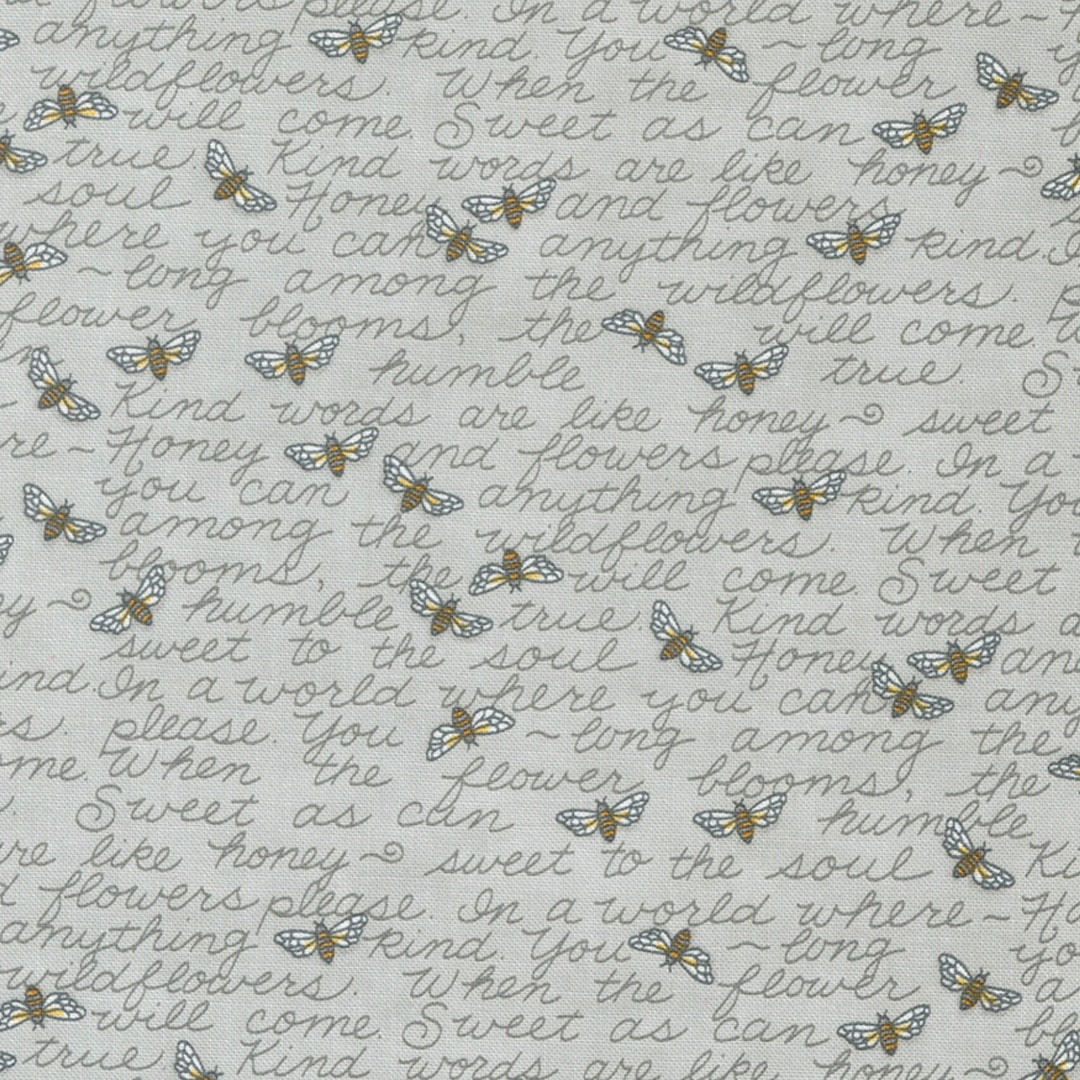 flowers please. In a world where~
anything kind. You ~long
wildflowers. When the flower
will come. Sweet as can
true. Kind words are like honey~
soul Honey and flowers
where you can anything kind.
~long among the wildflowers.
flower blooms, the will come.
humble true. S
Kind words are like honey~ sweet
re~Honey and flowers please. In a
you can anything kind. You
among the wildflowers. When
blooms, the will come. Sweet
ey~ humble true. Kind words a
sweet to the soul Honey and
ind. In a world where you can any
s. please. You ~long among the
me. When the flower blooms, the
Sweet as can humble
are like honey~ sweet to the soul Ki
d flowers please. In a world where~Ho
anything kind. You ~long yo
wildflowers. When the flower a
will come. Sweet as can bl
true. Kind words are like honey~